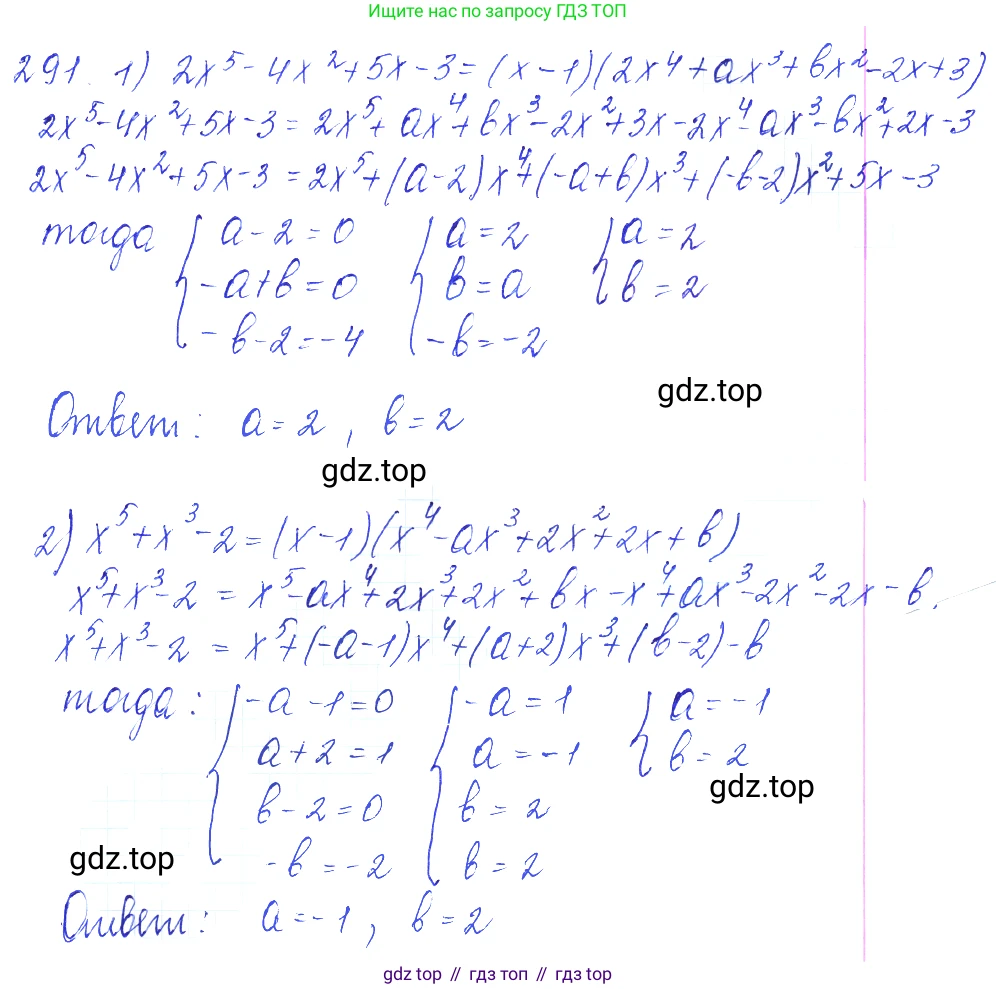 Ищите нас по запросу ГДЗ ТОП
291. 1) 2x⁵-4x²+5x-3=(x-1)(2x⁴+ax³+bx²-2x+3)
2x⁵-4x²+5x-3=2x⁵+ax⁴+bx³-2x²+3x-2x⁴-ax³-bx²+2x-3
2x⁵-4x²+5x-3=2x⁵+(a-2)x⁴+(-a+b)x³+(-b-2)x²+5x-3
тогда { a-2=0 { a=2 { a=2
-a+b=0 b=a b=2
-b-2=-4 -b=-2
gdz.top
Ответ: a=2, b=2
gdz.top
2) x⁵+x³-2=(x-1)(x⁴-ax³+2x²+2x+b)
x⁵+x³-2=x⁵-ax⁴+2x³+2x²+bx-x⁴+ax³-2x²-2x-b.
x⁵+x³-2=x⁵+(-a-1)x⁴+(a+2)x³+(b-2)-b
тогда: { -a-1=0 { -a=1 { a=-1
a+2=1 a=-1 b=2
gdz.top
b-2=0 b=2
gdz.top
-b=-2 b=2
Ответ: a=-1, b=2
gdz top // гдз топ // гдз top